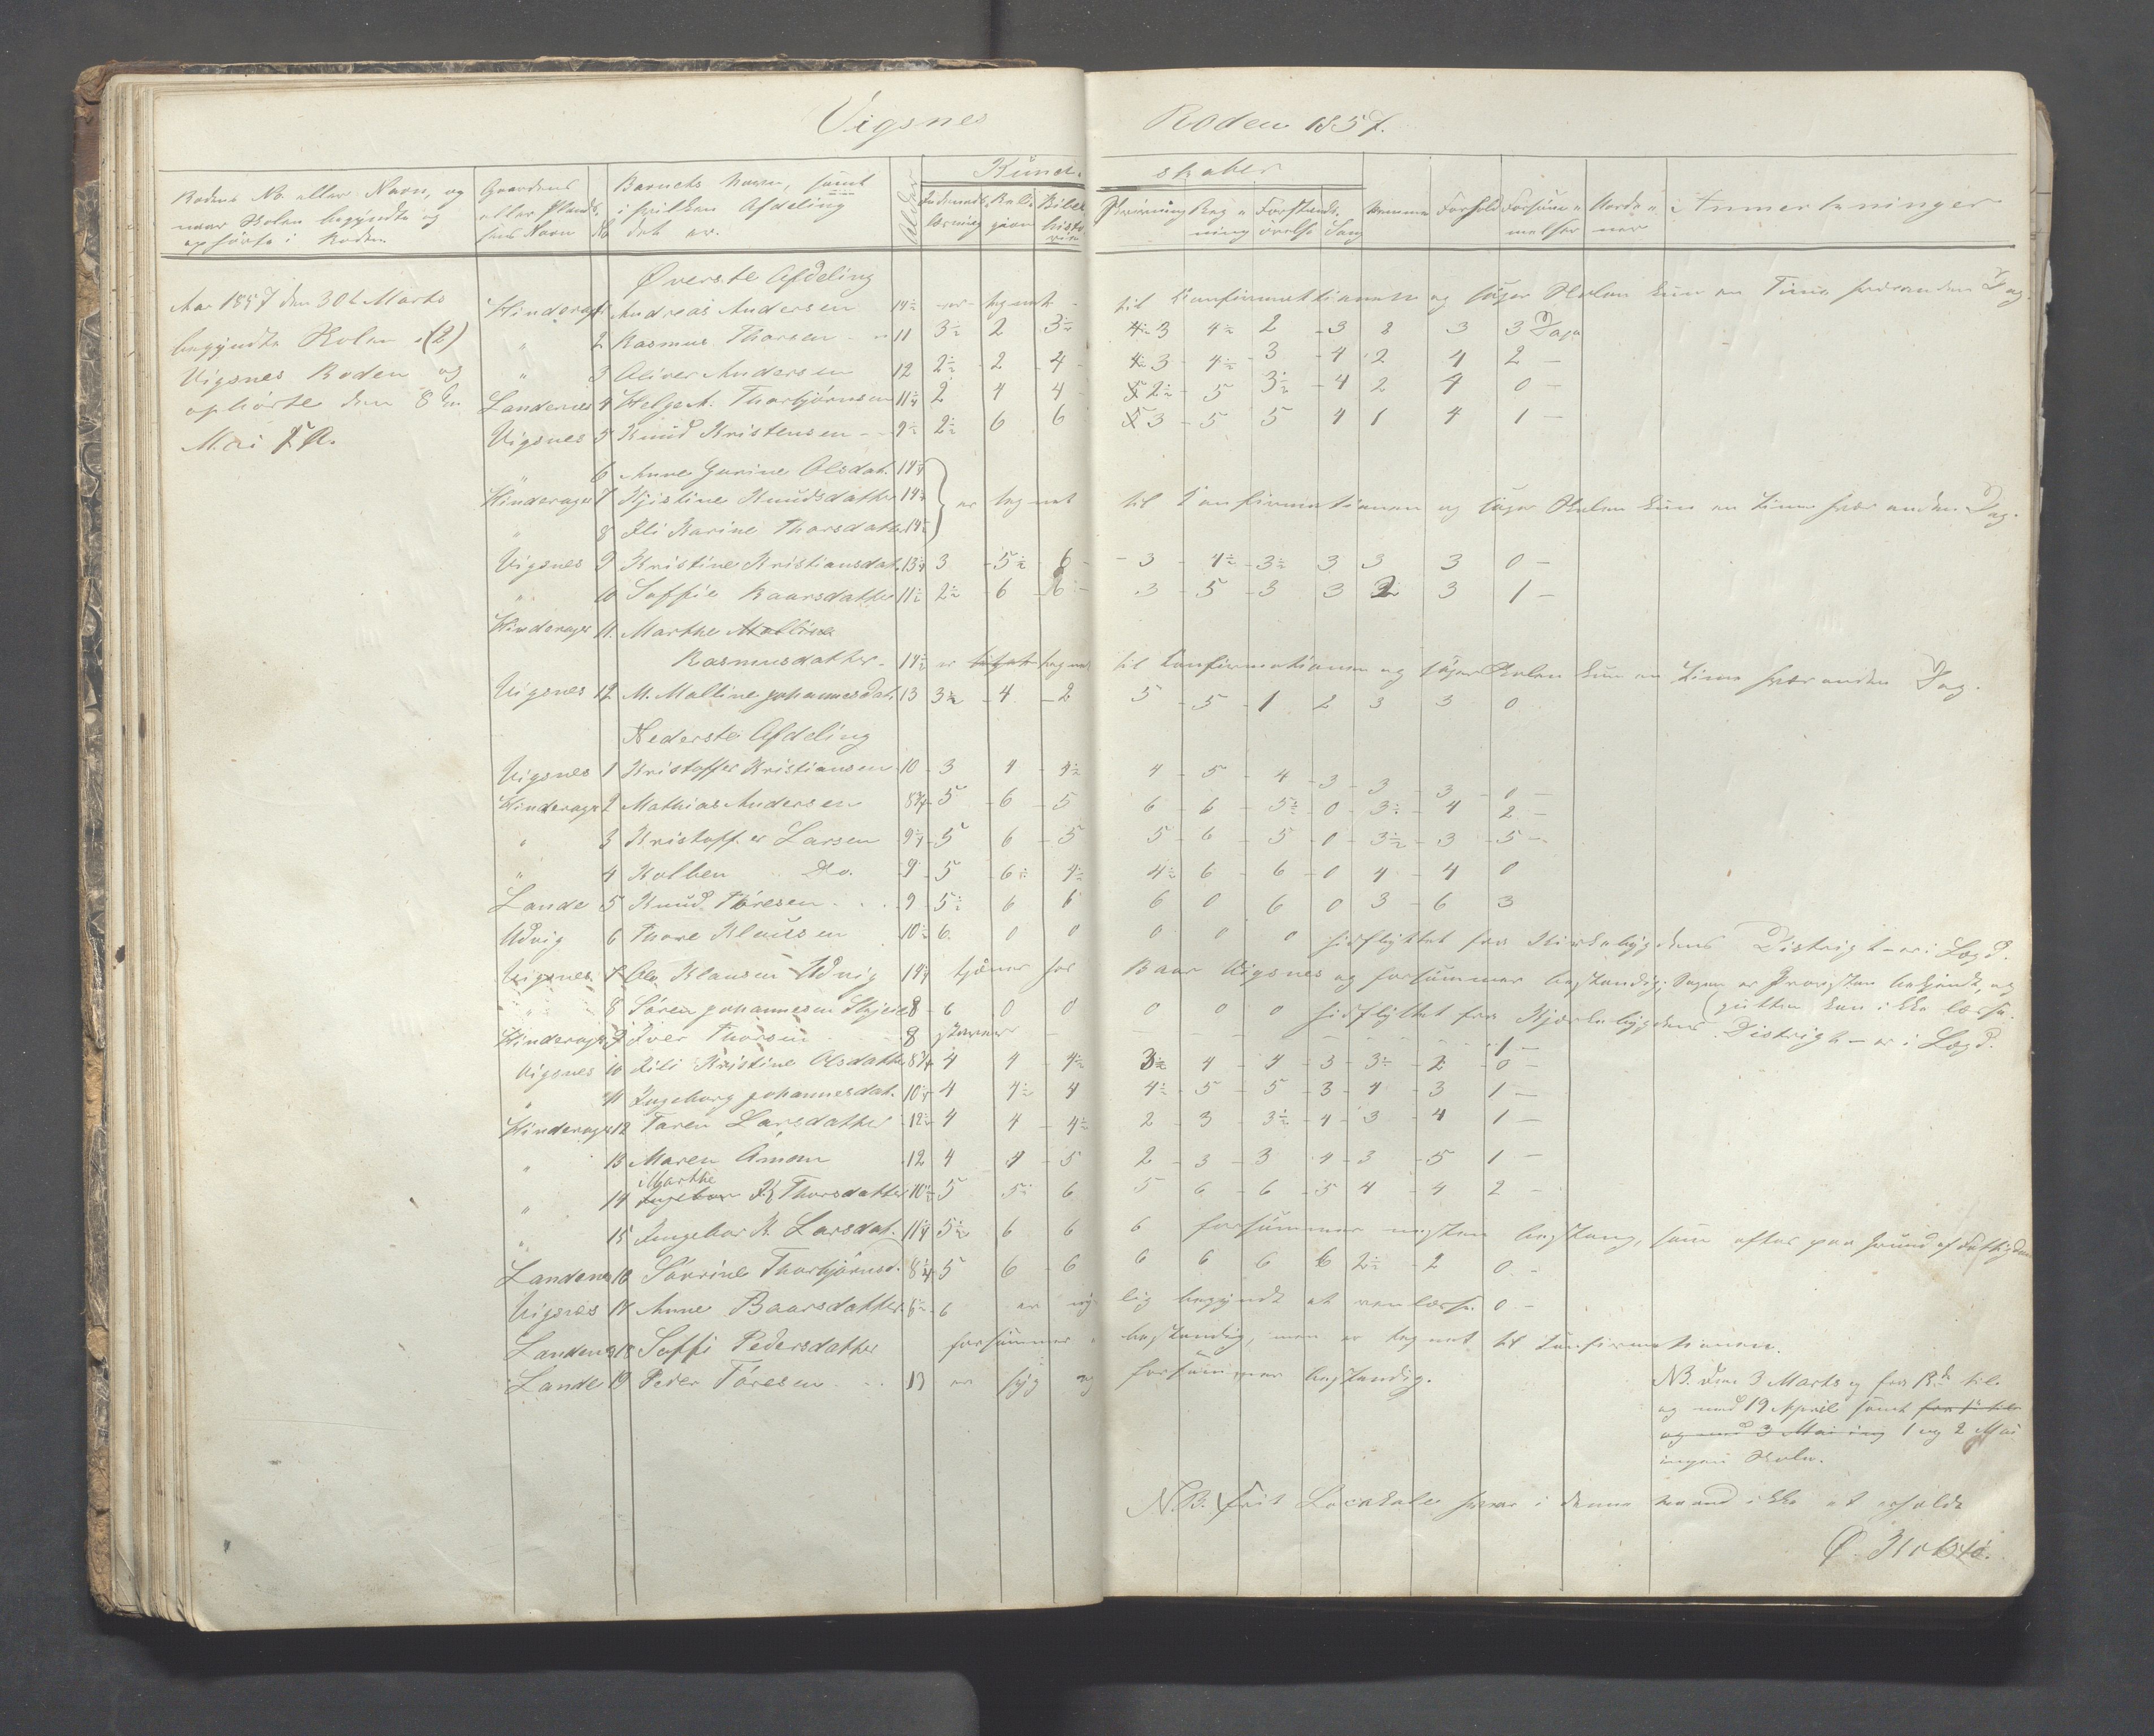 Vigsnes Roden 1857.
Rodens No. eller Navn, og naar Skolen begyndte og ophörte i Roden
Gaardens eller Pladsens Navn
No
Barnets Navn, samt i hvilken Afdeling det er.
Alder
Kund-skaber
Indenads læsning
Reli-gion
Bibel historie
Skrivning
Reg-ning
Forstands-övelse
Sang
Forhold
Forsöm-melser
Anmerkninger
Øverste Afdeling
Aar 1857 den 30te Marts
begyndte Skolen i (2)
Vigsnes Roden og
ophörte den 8de
Mai
Hinderager 1 Andreas Andersen 14½ er tegnet til Confirmationen og söger Skolen kun en Time hver anden Dag.
" 2 Rasmus Thorsen 11 3½ 2 3½ 3 4½ 2 3 3 3 Dage
" 3 Oliver Andersen 12 2½ 2 4 3 4½ 3 4 2 4 2 –
Landenes 4 Helge A. Thorbjörnsen 11¼ 2 4 4 2½ 5 3½ 4 2 4 0 –
Vigsnes 5 Knud Kristensen 9½ 2½ 6 6 3 5 5 4 1 4 1 –
" 6 Anne Gurine Olsdat. 14¼
Hinderager 7 Kjistine Knudsdatter 14½ er tegnet til Confirmationen og söger Skolen kun en Time hver anden Dag.
" 8 Eli Karine Thorsdatter 14½
Vigsnes 9 Kristine Kristiansdat. 13¼ 3 5½ 6 3 4½ 3½ 3 3 3 0 –
" 10 Soffie Baarsdatter 11½ 2½ 6 6 3 5 3 3 2 3 1 –
Hinderager 11. Marthe Mallina
Rasmusdatter 14½ er tegnet til Confirmationen og söger Skolen kun en Time hver anden Dag.
Vigsnes 12 M. Malline Johannesdat. 13 3½ 4 2 5 5 1 2 3 3 0
Nederste Afdeling
Vigsnes 1 Kristoffer Kristiansen 10 3 4 4½ 4 5 4 3 3 3 0 –
Hinderager 2 Mathias Andersen 8¾ 5 6 5 6 6 5½ 0 3½ 4 2 –
" 3 Kristoffer Larsen 9¼ 5 6 5 5 6 5 0 3½ 3 5 –
" 4 Kolben Do. 9 5 6½ 4½ 4½ 6 6 0 4 4 0
Lande 5 Knud Töresen 9 5½ 6 6 6 0 6 0 3 6 3
Udvig 6 Thore Klausen 10½ 6. 0 0 0 0 0 hidflyttet fra Kirkebygdens Distrigt – er i Lægd.
Vigsnes 7 Ole Klausen Udvig 14¼ tjener hos Baar Vigsnes og forsömmer bestandig; Sagen er Provsten bekjendt, og
(gutten kan ikke læse.
" 8 Sören Johannesen Skjeie 8 6 0 0 0 0 0 hidflyttet fra Kjirkebygdens Distrigt – er i Lægd.
Hinderager 9 Iver Thorsen 8 staver – 1 –
Vigsnes 10 Eili Kristine Olsdatter 8¾ 4 4 4½ 3½ 4 4 3 3½ 2 0 –
" 11 Ingeborg Johannesdat. 10¼ 4 4½ 4 4½ 5 5 3 4 3 1 –
Hinderager 12 Taren Larsdatter 12½ 4 4 4½ 2 3 3½ 4 3 4 1 –
" 13 Maren 12 4 4 5 2 3 3 4 3 5 1 –
Marthe
" 14 Thorsdatter 10½ 5 5½ 6 5 6 6 5 4 4 2 –
" 15 Ingebor K. Larsdat. 11¼ 5½ 6 6 6 forsömmer næsten bestandig, som oftes paa Grund af Fattigdom
Landenes 16 Sörrine Thorbjörnsd. 8¼ 5 6 6 6 6 6 6 2½ 2 0 –
Vigsnes 17 Anne Baarsdatter 6½ 6 er nylig begyndt at læse. 0 –
Landenes 18 Soffi Pedersdatter forsömmer bestandig, men er tegnet til Confirmationen.
Lande 19 Peder Töresen 13 er syg og forsömmer bestandig.
NB. Den 3 Marts og fra 13de til
og med 19 April samt
og med 3 Mai 1 og 2 Mai
ingen Skole.
N.B. Frit Locale haves i denne ikke at erholde